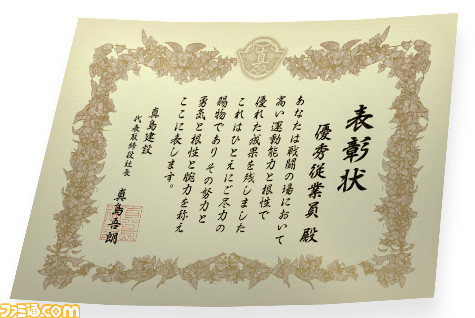 表彰状
優秀従業員 殿
あなたは戦闘の場において
高い運動能力と根性で
優れた成果を残しました
これはひとえにご尽力の
賜物であり その努力と
勇気と根性と腕力を称え
ここに表します。
真島建設
代表取締役社長
真島吾朗
ファミ通.com